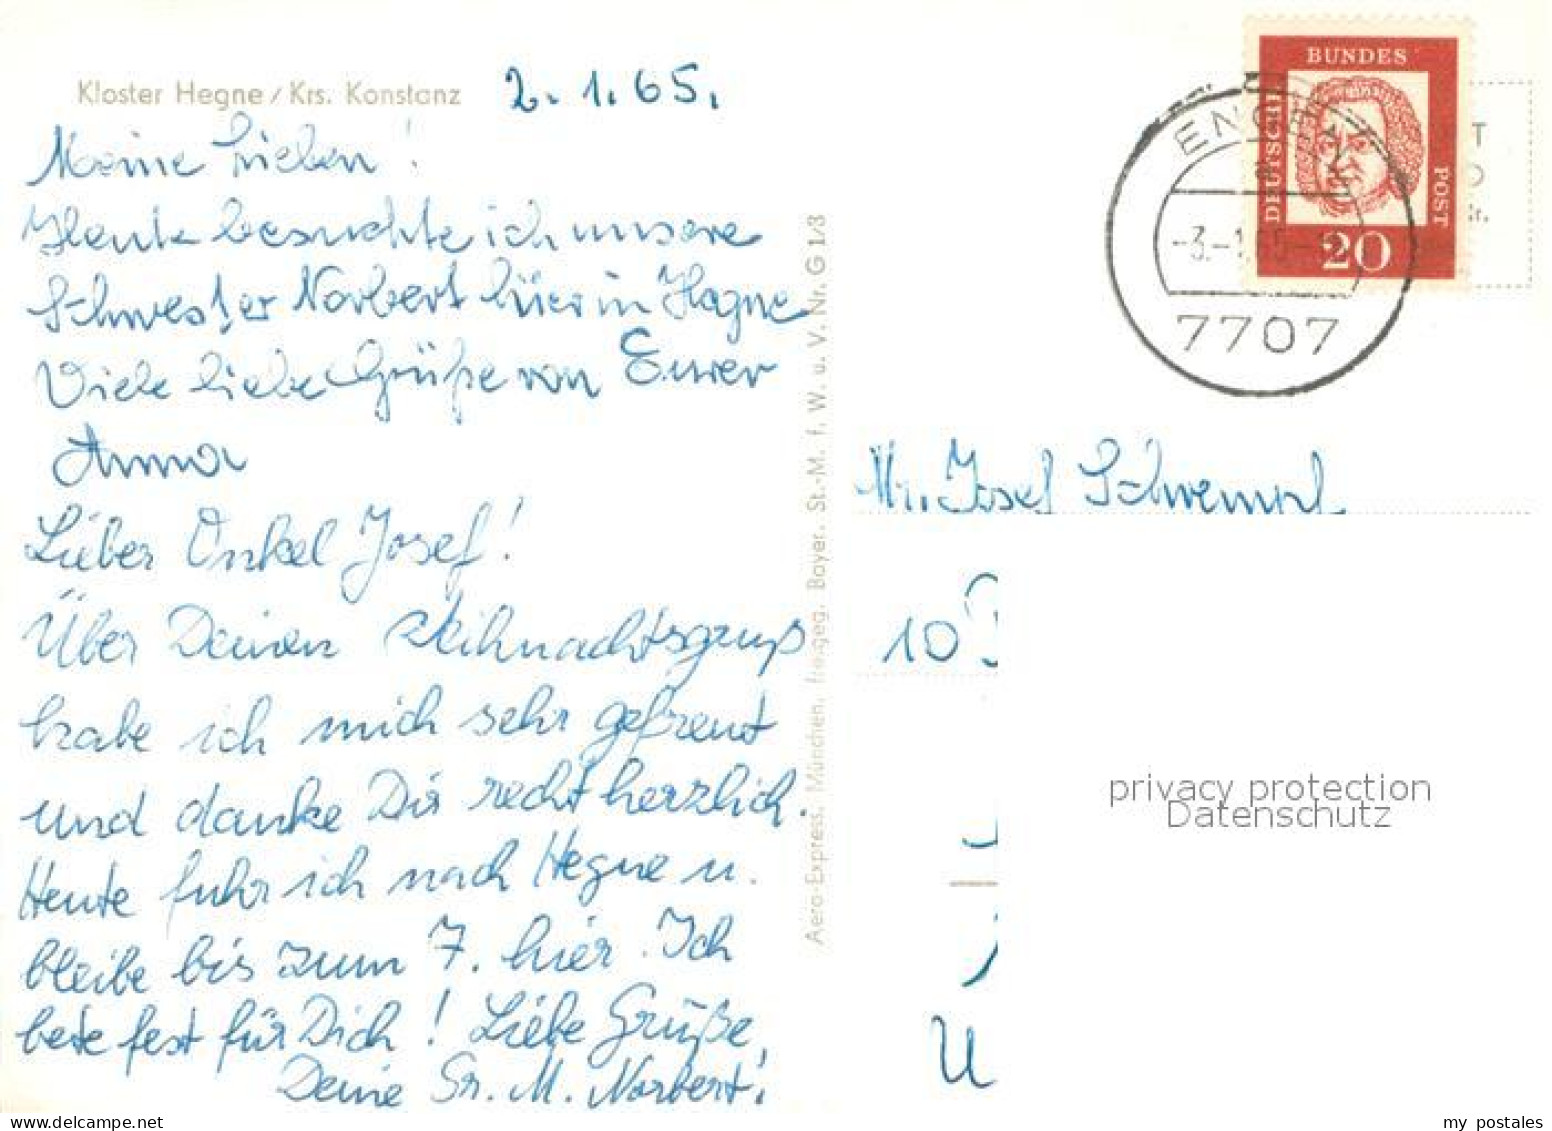 Kloster Hegne / Krs. Konstanz
2.1.65.
Meine Lieben!
Heute besuchte ich unsere
Schwester Norbert hier in Hegne
Viele liebe Grüße von Eurer
Anna
Lieber Onkel Josef!
Über Deinen Weihnachtsgruß
habe ich mich sehr gefreut
und danke Dir recht herzlich.
Heute fuhr ich nach Hegne u.
bleibe bis zum 7. hier. Ich
bete fest für Dich! Liebe Grüße,
Deine Sr. M. Norberta
Aero-Express, München, freigeg. Bayer. St.-M. f. W. u. V. Nr. G 1/3
BUNDES
DEUTSCHE
POST
20
ENGEN
-3.-1.
7707
Mr. Josef
10
U
privacy protection
Datenschutz
my postales